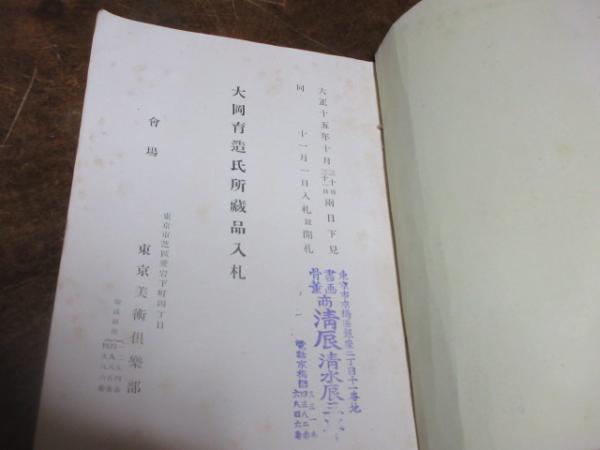 大正十五年十月三十日三十一日両日下見
同 十一月一日入札並開札
大岡育造氏所蔵品入札
會場
東京市芝區愛宕下町四丁目
東京美術倶樂部
東京市京橋區銀座二丁目十一番地
書画骨董商 清辰 清水辰三
電話京橋